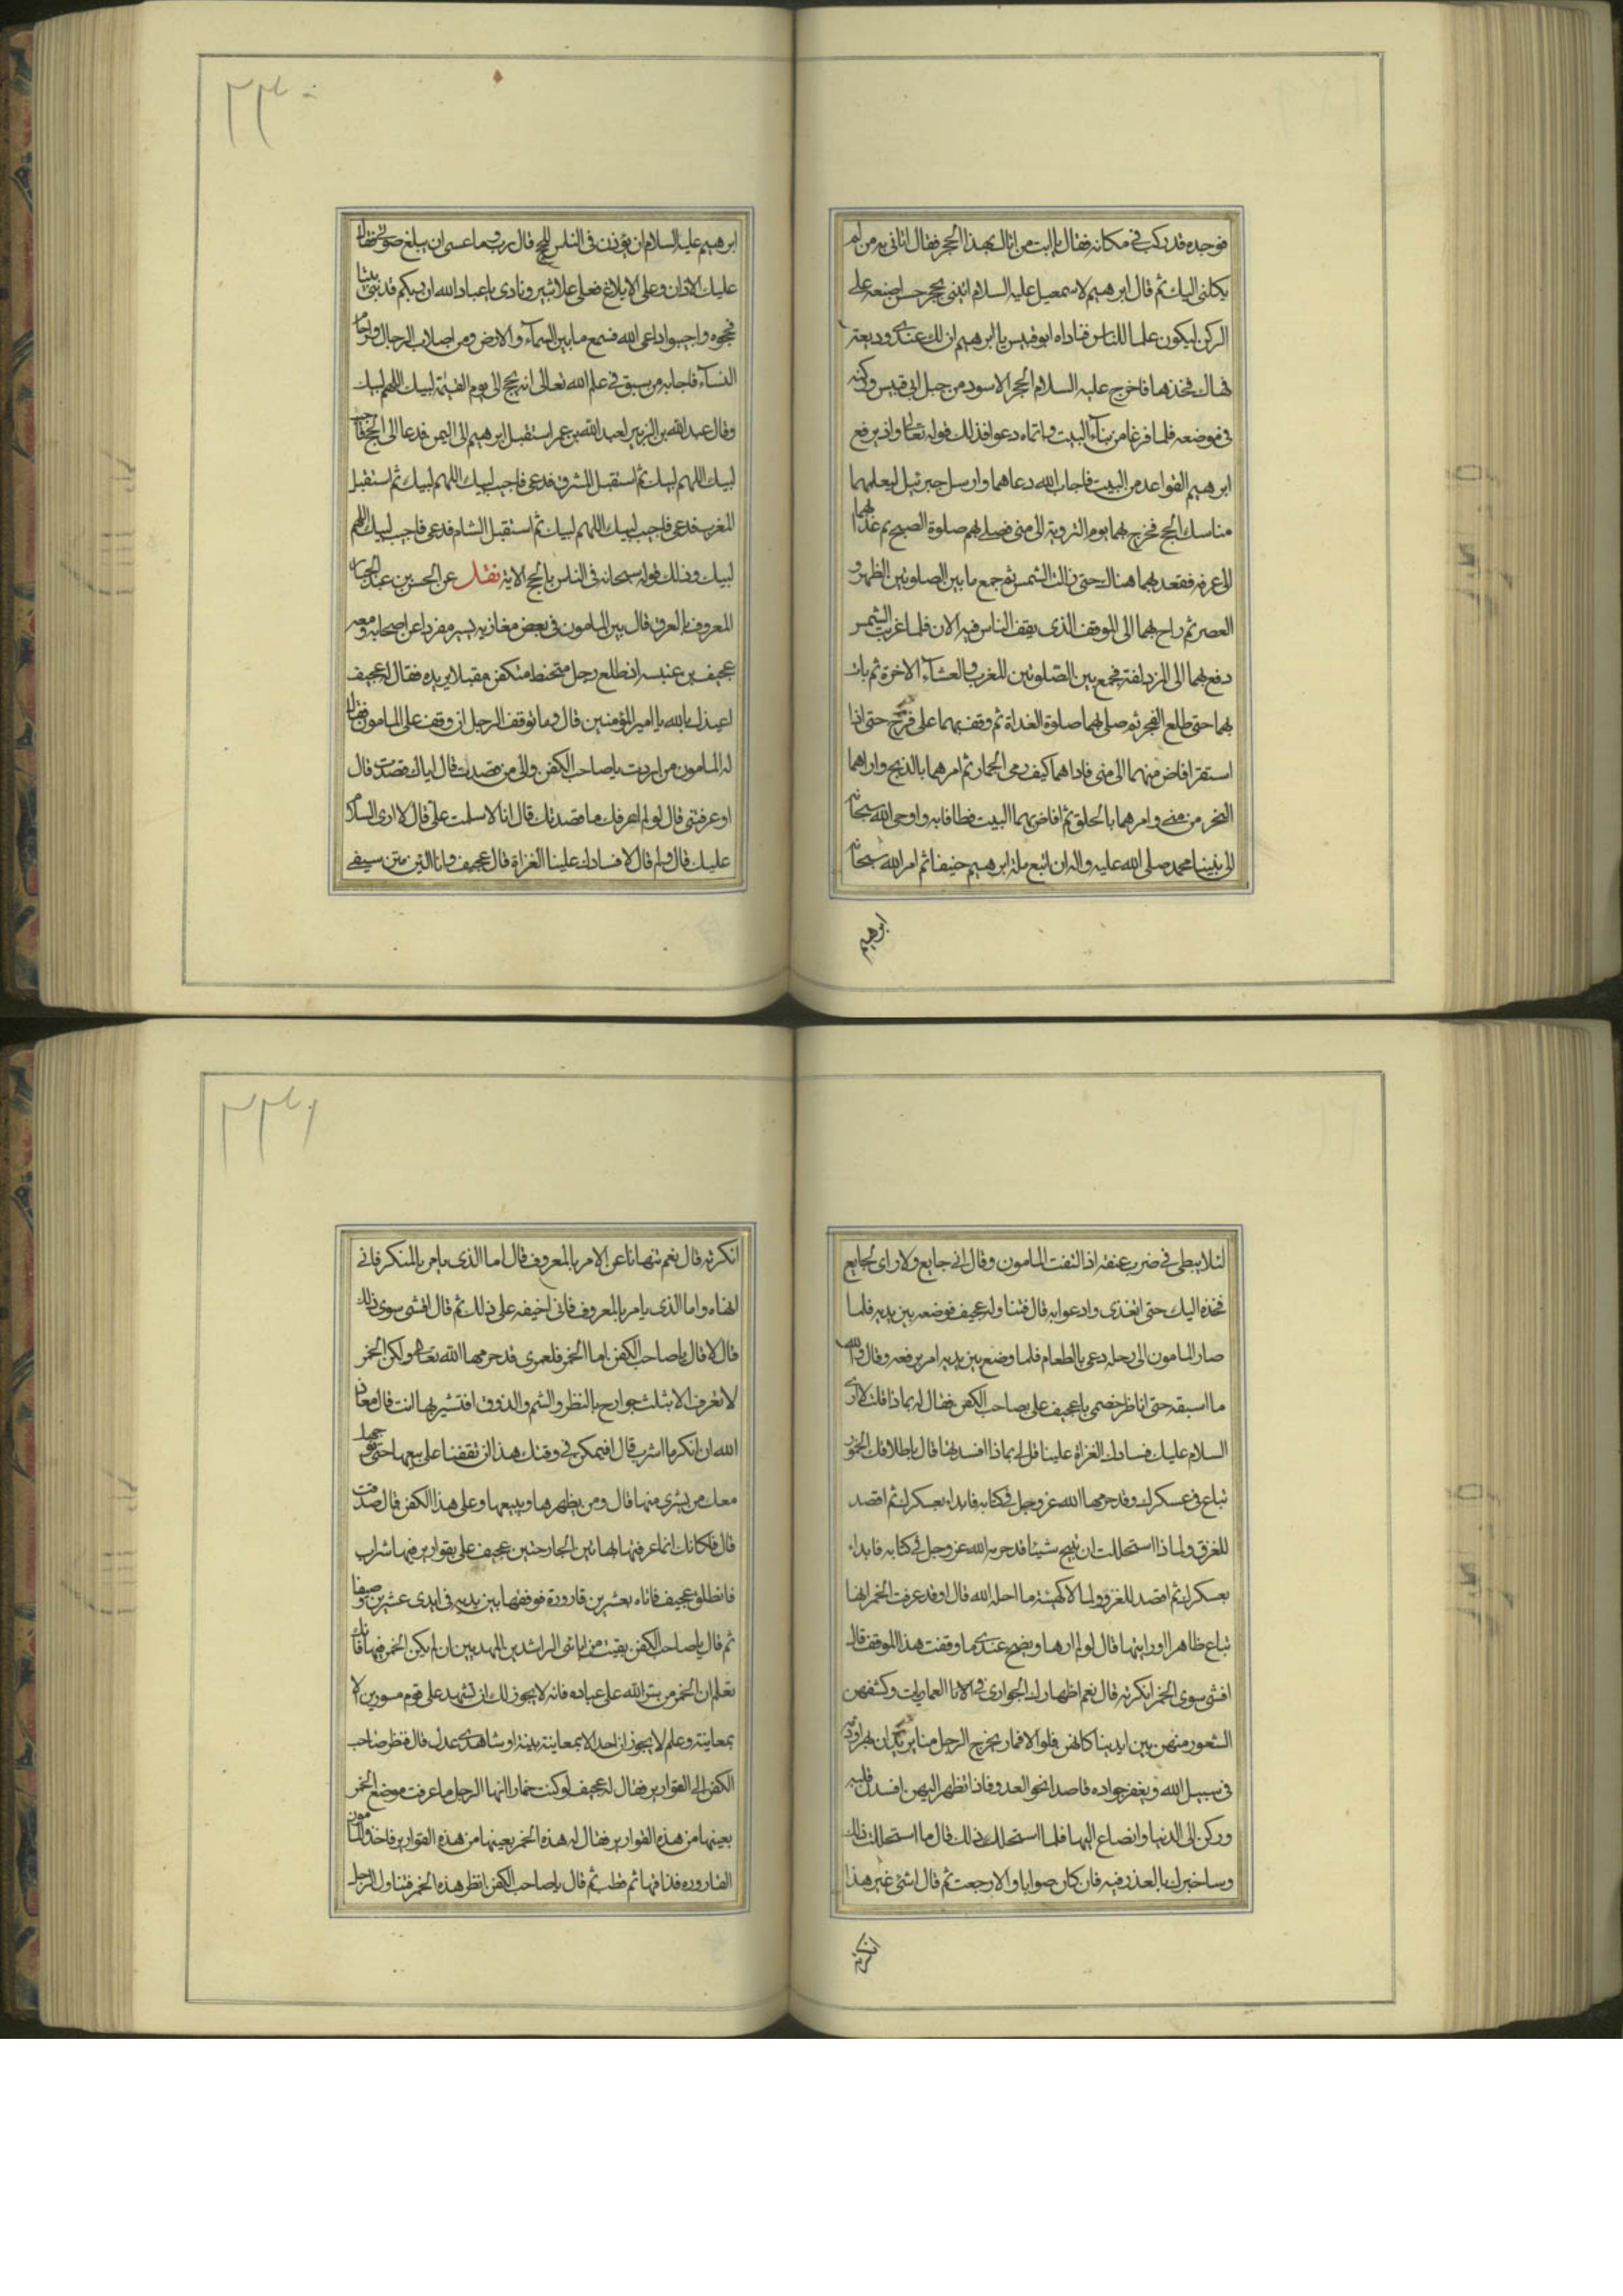 فوجده قد ركب في مكانه فقال يا ابت من اتاك بهذا الحجر فقال اتاني به من لم
يكلني اليك ثم قال ابرهيم لاسمعيل عليه السلام ايتني بحجر حسن اضعه على
الركن ليكون علما للناس فناداه ابو قبيس يا ابرهيم ان لك عندي وديعة
فهاك فخذها فاخرج عليه السلام الحجر الاسود من جبل ابي قبيس وركبه
في موضعه فلما فرغا من بناء البيت واتماه دعوا فذلك قوله تعالى واذ يرفع
ابرهيم القواعد من البيت فاجاب الله دعاهما وارسل جبرئيل ليعلمهما
مناسك الحج فخرج بهما يوم التروية الى منى فصلى بهم صلوة الصبح ثم غدا بهما
الى عرفه فقعد بهما هناك حتى زالت الشمس ثم جمع ما بين الصلوتين الظهر و
العصر ثم راح بهما الى الموقف الذي يقف الناس فيه الان فلما غربت الشمس
دفع بهما الى المزدلفة فجمع بين الصلوتين المغرب والعشاء الاخرة ثم بات
بهما حتى طلع الفجر ثم صلى بهما صلوة الغداة ثم وقف بهما على قزح حتى اذا
استقر افاض منهما الى منى فاداهما كيف رمى الجمار ثم امرهما بالذبح واراهما
النحر من منى وامرهما بالحلق ثم افاض بهما البيت فطافا به واوحى الله سبحانه
الى نبينا محمد صلى الله عليه واله ان اتبع ملة ابرهيم حنيفا ثم امر الله سبحانه
ابرهيم
٢٣٠
ابرهيم عليه السلام ان يؤذن في الناس للحج قال رب وما عسى ان يبلغ صوتي فقال
عليك الاذان وعلى الابلاغ فعلى على ثبير ونادى يا عباد الله ان ربكم قد بنى بيتا
فحجوه واجيبوا داعى الله فسمع ما بين السماء والارض ومن اصلاب الرجال وارحام
النساء فاجابه من سبق في علم الله تعالى انه يحج الى يوم القيمة لبيك اللهم لبيك
وقال عبد الله بن الزبير لعبد الله بن عمر استقبل ابرهيم الى اليمن فدعا الى الحج فاجيب
لبيك اللهم لبيك ثم استقبل المشرق فدعى فاجيب لبيك اللهم لبيك ثم استقبل
المغرب فدعى فاجيب لبيك اللهم لبيك ثم استقبل الشام فدعى فاجيب لبيك اللهم
لبيك وذلك قوله سبحانه في الناس بالحج الاية نقل عن الحسين بن عبد الجبار
المعروف بالعرق قال بين المامون في بعض مغازيه يسير مفردا عن اصحابه ومعه
عجيف بن عنبسه اذ طلع رجل متحنط متكفن مقبلا يريده فقال له عجيف
اعيذك بالله يا امير المؤمنين قال وما توقف الرجل ان وقف على المامون فقال
له المامون من اردت يا صاحب الكفن والى من قصدت قال اياك قصدت قال
او عرفتني قال لو لم اعرفك ما قصدتك قال افلا سلمت علي قال لا ارى السلام
عليك قال ولم قال لافسادك علينا الغزاة قال عجيف وانا الين متن سيفي
لئلا يبطى في ضرب عنقه اذ التفت المامون وقال اني جايع ولا راى لجايع
فخذه اليك حتى اتغذى وادعوا به قال فتناوله عجيف فوضعه بين يديه فلما
صار المامون الى رحله دعى بالطعام فلما وضع بين يديه امر برفعه وقال والله
ما اسيغه حتى اناظر خصمي يا عجيف علي بصاحب الكفن فقال له بماذا قلت لا ارى
السلام عليك فسادك الغزاة علينا قل لي بماذا افسدتها قال باطلاقك الخمور
تباع في عسكرك وقد حرمها الله عز وجل في كتابه فابداء بعسكرك ثم اقصد
للغزو ولماذا استحللت ان تبيح شيئا قد حرمه الله عز وجل في كتابه فابداء
بعسكرك ثم اقصد للغزو ولما لا كهيئة ما احله الله قال اوقد عرفت الخمر انها
تباع ظاهرا او رايتها قال لو لم ارها ويضح عندي ما وقفت هذا الموقف قال
افشي سوى الخمر انكرته قال نعم اظهارك الجواري في الانا العماريات وكشفهن
الشعور منهن بين ايدينا كانهن فلقوا الاقمار يخرج الرجل منا يريد ان يهراق دمه
في سبيل الله ويعقر جواده قاصدا نحو العدو فاذا نظر اليهن افسدن قلبه
وركن الى الدنيا وانصاع اليها فلما استحللت ذلك قال ما استحللت ذلك
وساخبرك بالعذر فيه فان كان صوابا والا رجعت ثم قال اشي غير هذا
انكرته
٢٣١
انكرته قال نعم تنهانا عن الامر بالمعروف قال اما الذي يامر بالمنكر فاني
انهاه واما الذي يامر بالمعروف فاني اخيفه على ذلك ثم قال افشي سوى ذلك
قال لا قال يا صاحب الكفن اما الخمر فلعمري قد حرمها الله تعالى ولكن الخمر
لا تعرف الا بثلث جوارح بالنظر والشم والذوق افتشربها انت قال معاذ
الله ان انكر ما اشرب قال افيمكن في وقتك هذا ان تقفنا على بيعها حتى نوجه
معك من يشري منها قال ومن يظهرها ويبيعها وعلي هذا الكفن قال صدقت
قال فكانك انما عرفتها بهاتين الجارحتين عجيف علي بقوارير فيها شراب
فانطلق عجيف فاتاه بعشرين قارورة فوقفها بين يديه في ايدى عشرين وصيفا
ثم قال يا صاحب الكفن نفيت من ابائي الراشدين المهديين ان لم يكن الخمر فيها فانك
تعلم ان الخمر من ستر الله على عباده فانه لا يجوز لك ان تشهد على قوم مستورين الا
بمعاينة وعلم لا يجوز ان احد الا بمعاينة بينة او شاهدي عدل قال فنظر صاحب
الكفن الى القوارير فقال له عجيف لو كنت خمارا ايها الرجل ما عرفت موضع الخمر
بعينها من هذه القوارير فقال له هذه الخمر بعينها من هذه القوارير فاخذ المامون
القارورة فذاقها ثم قطب ثم قال يا صاحب الكفن انظر هذه الخمر فتناول الرجل